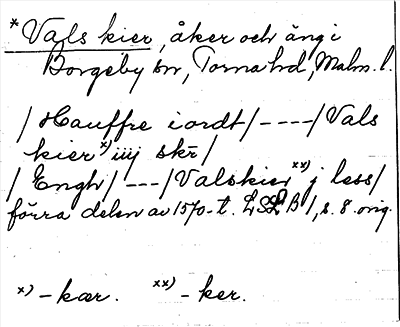 *Vals kier, åker och äng i
Borgeby sn, Torna hd, Malm. l.
/ Hauffre iordt / - - - - / Vals
kier x) iiij skr /
/ Engh / - - - / Valskier xx) j less /
förra delen av 1570-t. LSÅ B 1, s. 8 orig.
x) - kær. xx) - ker.